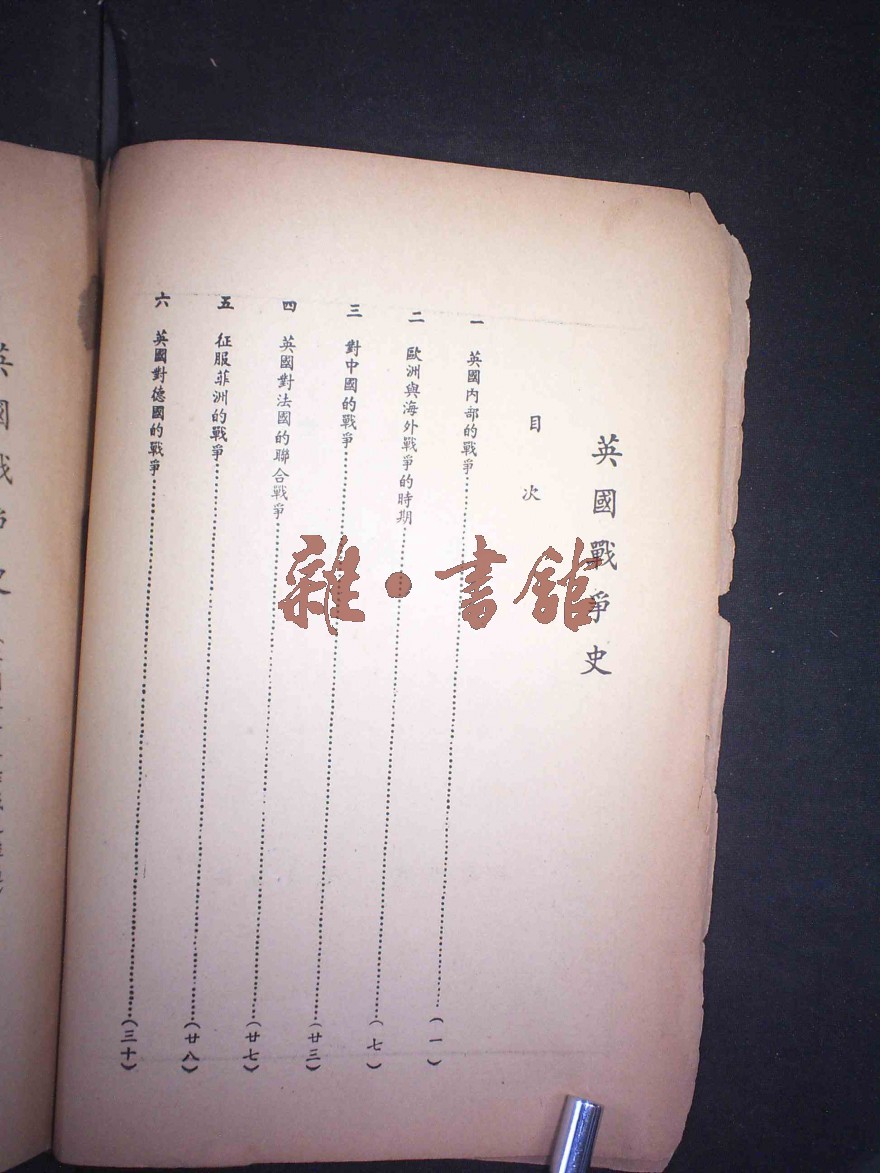 英國戰爭史
目次
一 英國內部的戰爭……(一)
二 歐洲與海外戰爭的時期……(七)
三 對中國的戰爭……(廿三)
四 英國對法國的聯合戰爭……(廿七)
五 征服菲洲的戰爭……(廿八)
六 英國對德國的戰爭……(三十)
英國戰爭史
雜·書館